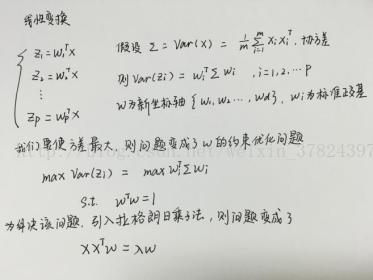 线性变换
z₁ = w₁ᵀx
z₂ = w₂ᵀx
⋮
zₚ = wₚᵀx
假设 Σ = Var(X) = 1/m Σᵢ₌₁ᵐ xᵢxᵢᵀ, 协方差
则 Var(zᵢ) = wᵢᵀΣwᵢ , i=1,2,…p
W为新坐标轴 {w₁,w₂…,wd}, wᵢ为标准正交基
我们要使方差最大, 则问题变成了w的约束优化问题
max Var(zᵢ) = max wᵢᵀΣwᵢ
s.t. wᵀw=1
为解决该问题, 引入拉格朗日乘子法, 则问题变成了
XXᵀw = λw
http://blog.csdn.net/weixin_37824397